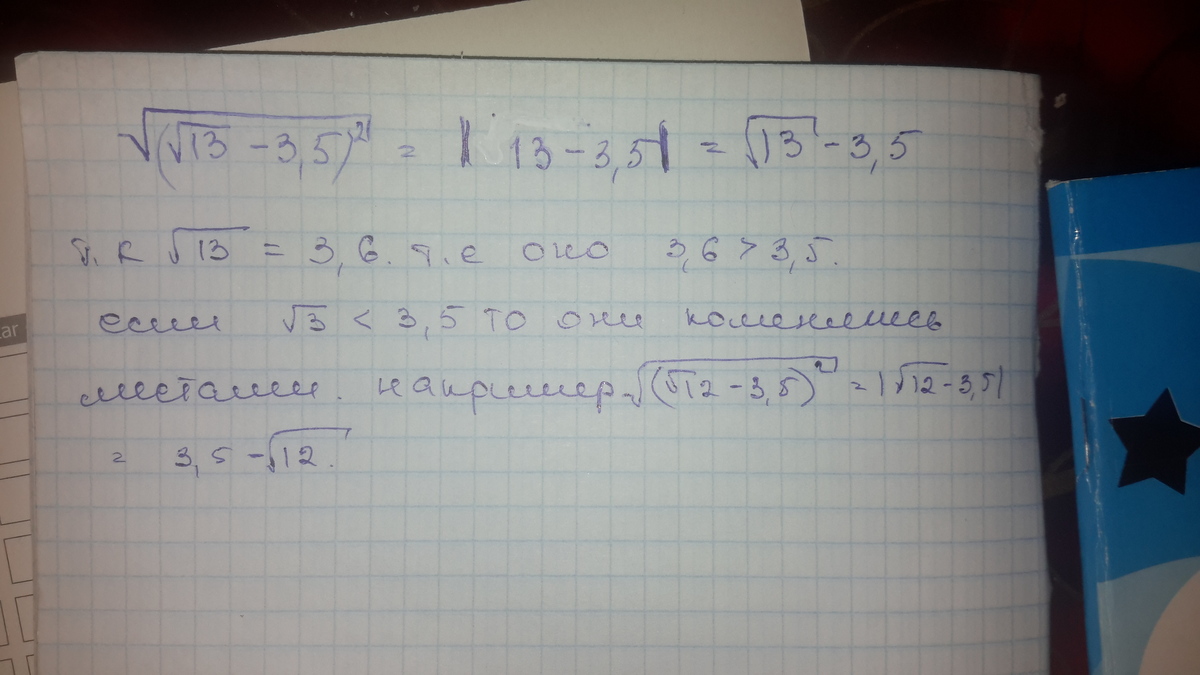 √(√13 - 3,5)² = | 13 - 3,5| = √13 - 3,5
т. к √13 = 3,6. т.е оно 3,6 > 3,5.
если √3 < 3,5 то они поменялись
местами. например √(√12 - 3,5)² = |√12 - 3,5|
= 3,5 - √12.